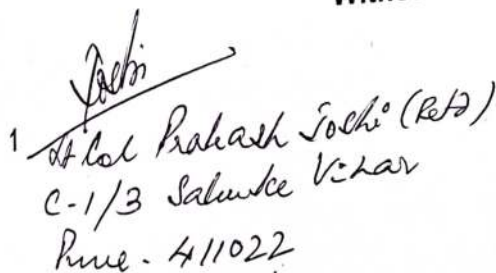 Joshi
1 Lt Col Prakash Joshi (Retd)
C-1/3 Salunke Vihar
Pune - 411022